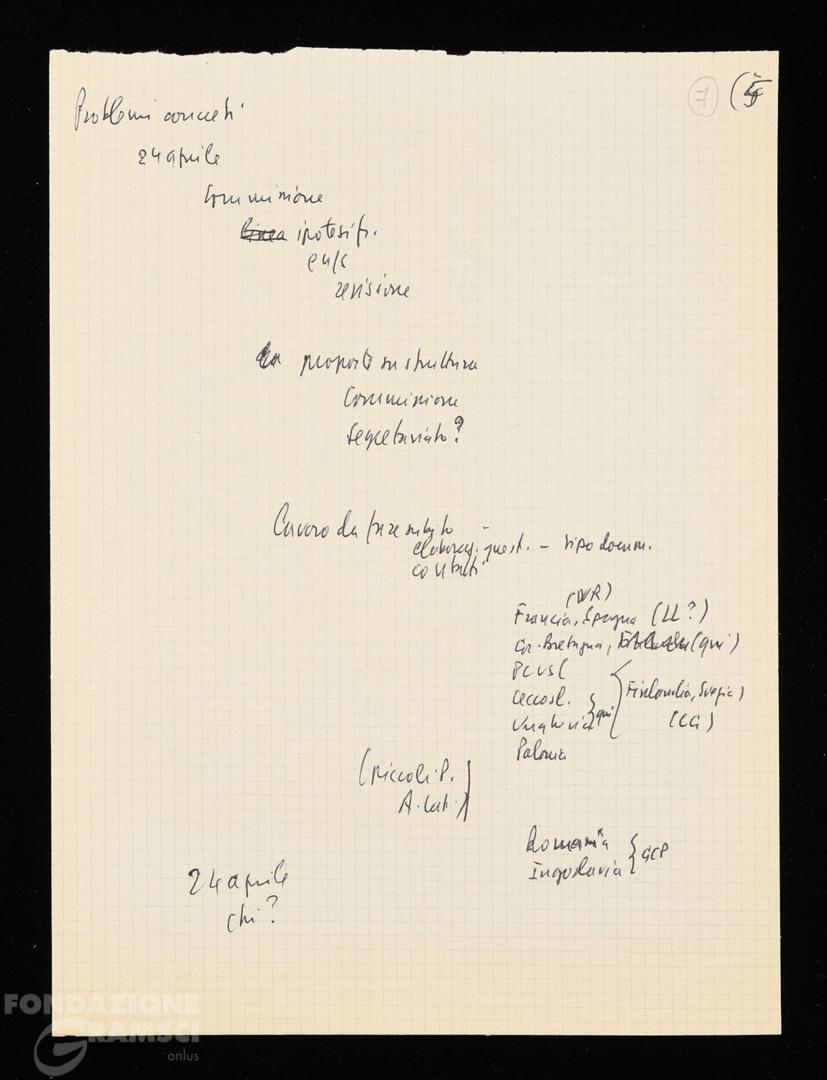 7 (5
Problemi concreti
24 aprile
Commissione
linea ipotesi fr.
revisione
proposte su struttura
Commissione
Segretariato?
Lavoro da fare subito -
elaboraz. quest. - tipo docum.
contatti
Francia, Spagna (LL?)
Gr. Bretagna, (qui)
PCUS (
Cecosl.
Ungheria } qui { Finlandia, Svezia)
(CG)
Polonia
(piccoli P.
A. Lat.)
Romania
Iugoslavia } GCP
24 aprile
chi?
FONDAZIONE
GRAMSCI
onlus